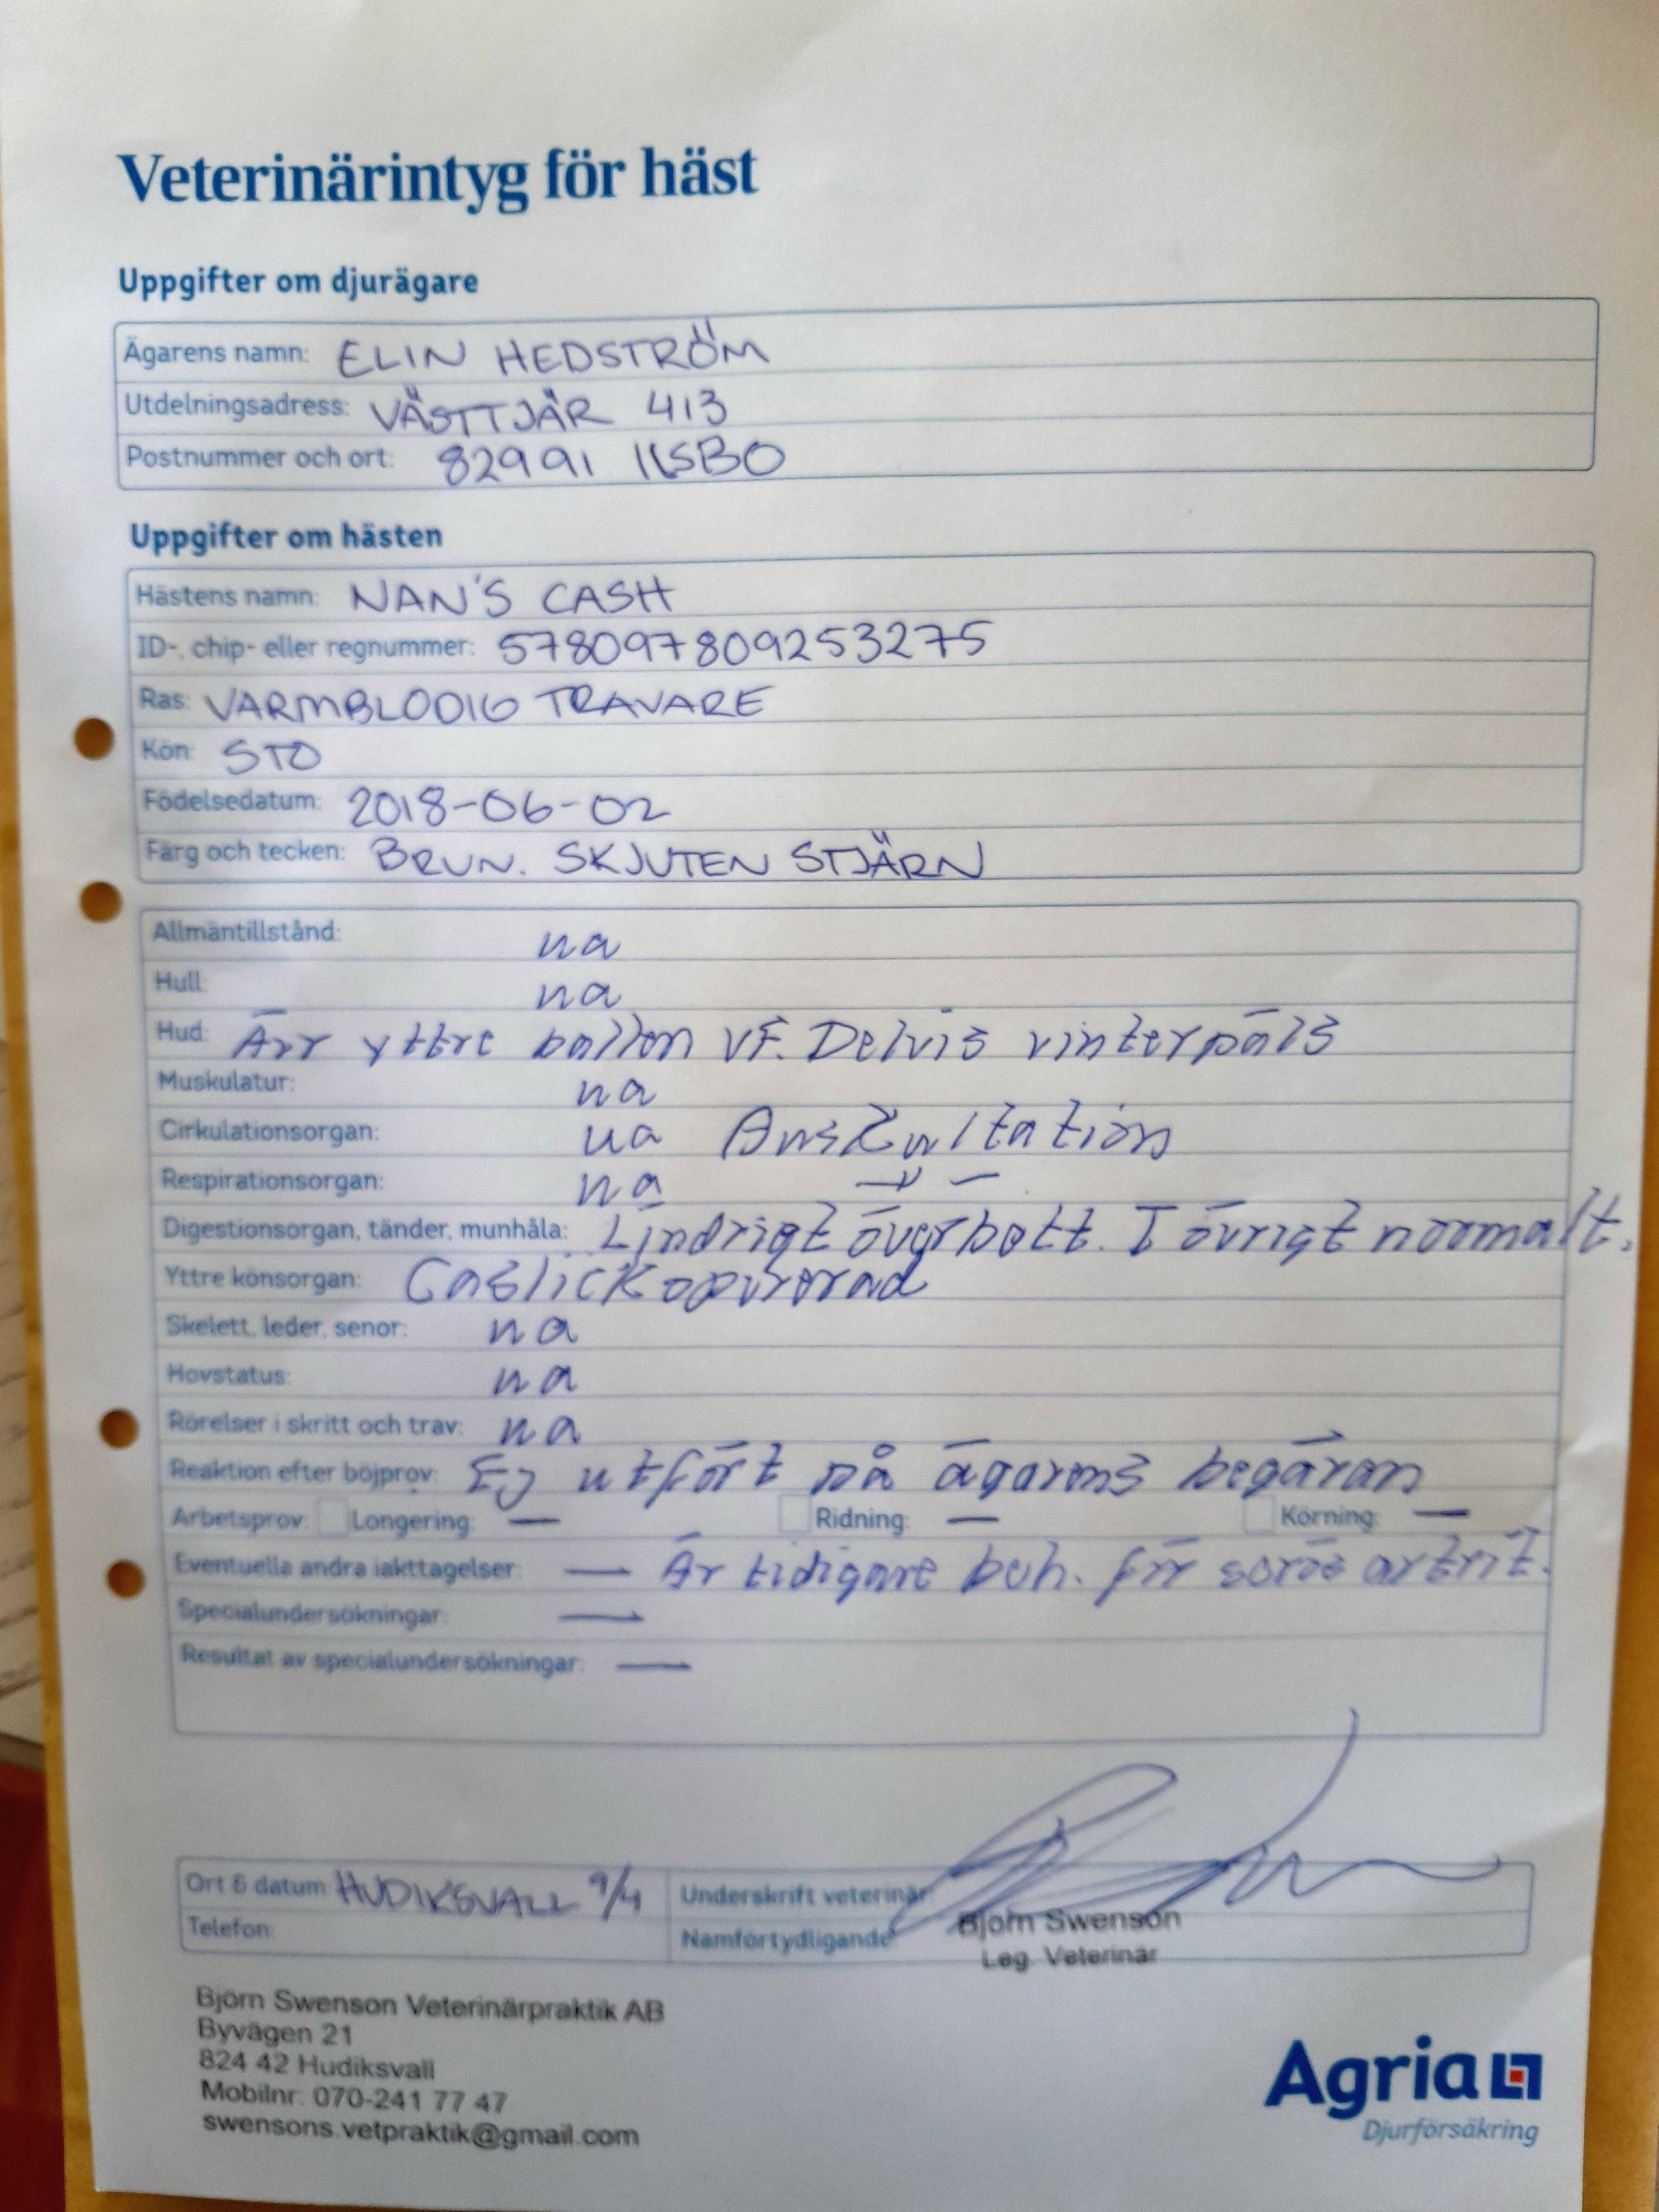 Veterinärintyg för häst
Uppgifter om djurägare
Ägarens namn: ELIN HEDSTRÖM
Utdelningsadress: VÄSTTJÄR 413
Postnummer och ort: 82991 ILSBO
Uppgifter om hästen
Hästens namn: NAN'S CASH
ID-, chip- eller regnummer: 578097809253275
Ras: VARMBLODIG TRAVARE
Kön: STO
Födelsedatum: 2018-06-02
Färg och tecken: BRUN. SKJUTEN STJÄRN
Allmäntillstånd: ua
Hull: ua
Hud: Ärr yttre ballen VF. Delvis vinterpäls
Muskulatur: ua
Cirkulationsorgan: ua Auskultation
Respirationsorgan: ua —"—
Digestionsorgan, tänder, munhåla: Lindrigt överbett. I övrigt normalt.
Yttre könsorgan: Caslickopererad
Skelett, leder, senor: ua
Hovstatus: ua
Rörelser i skritt och trav: ua
Reaktion efter böjprov: Ej utfört på ägarens begäran
Arbetsprov: Longering: — Ridning: — Körning: —
Eventuella andra iakttagelser: — Är tidigare beh. för serös artrit.
Specialundersökningar: —
Resultat av specialundersökningar: —
Ort & datum HUDIKSVALL 9/4 Underskrift veterinär:
Telefon: Namförtydligande: Björn Swenson
Leg. Veterinär
Björn Swenson Veterinärpraktik AB
Byvägen 21
824 42 Hudiksvall
Mobilnr: 070-241 77 47
swensons.vetpraktik@gmail.com
Agria
Djurförsäkring